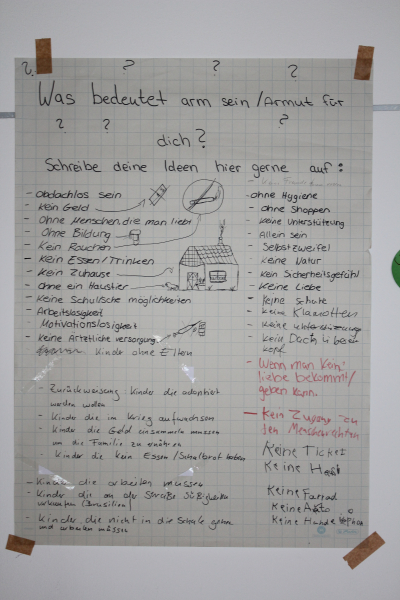 ? ? ? ?
Was bedeutet arm sein/Armut für
? ? ?
dich?
Schreibe deine Ideen hier gerne auf:
- Obdachlos sein
- Kein Geld
- Ohne Menschen, die man liebt
- Ohne Bildung
- Kein Rauchen
- Kein Essen/Trinken
- Kein Zuhause
- ohne ein Haustier
- Keine Schulische möglichkeiten
- Arbeitslosigkeit
Motivationslosigkeit
- keine Artztliche versorgung
Kinder ohne Eltern
- Zurückweisung Kinder die adoptiert
werden wollen
- Kinder die im Krieg aufwachsen
- Kinder die Geld einsammeln müssen
um die Familie zu ernähren
- Kinder die kein Essen/Schulbrot haben
- Kinder die arbeiten müssen
- Kinder die an der Straße Süßigkeiten
verkaufen (Brasilien)
- Kinder die nicht in die Schule gehen
und arbeiten müssen
- ohne Hygiene
- ohne Shoppen
- keine Unterstützung
- Allein sein
- Selbstzweifel
- keine Natur
- Kein Sicherheitsgefühl
- Keine Liebe
- keine schule
- keine Klamotten
- keine unterstützung
- kein Dach über
kopf
- Wenn man kein
liebe bekommt/
geben kann.
- Kein Zugang zu
den Menschenrechten
Keine Ticket
Keine
Keine Farrad
Keine Auto
Keine